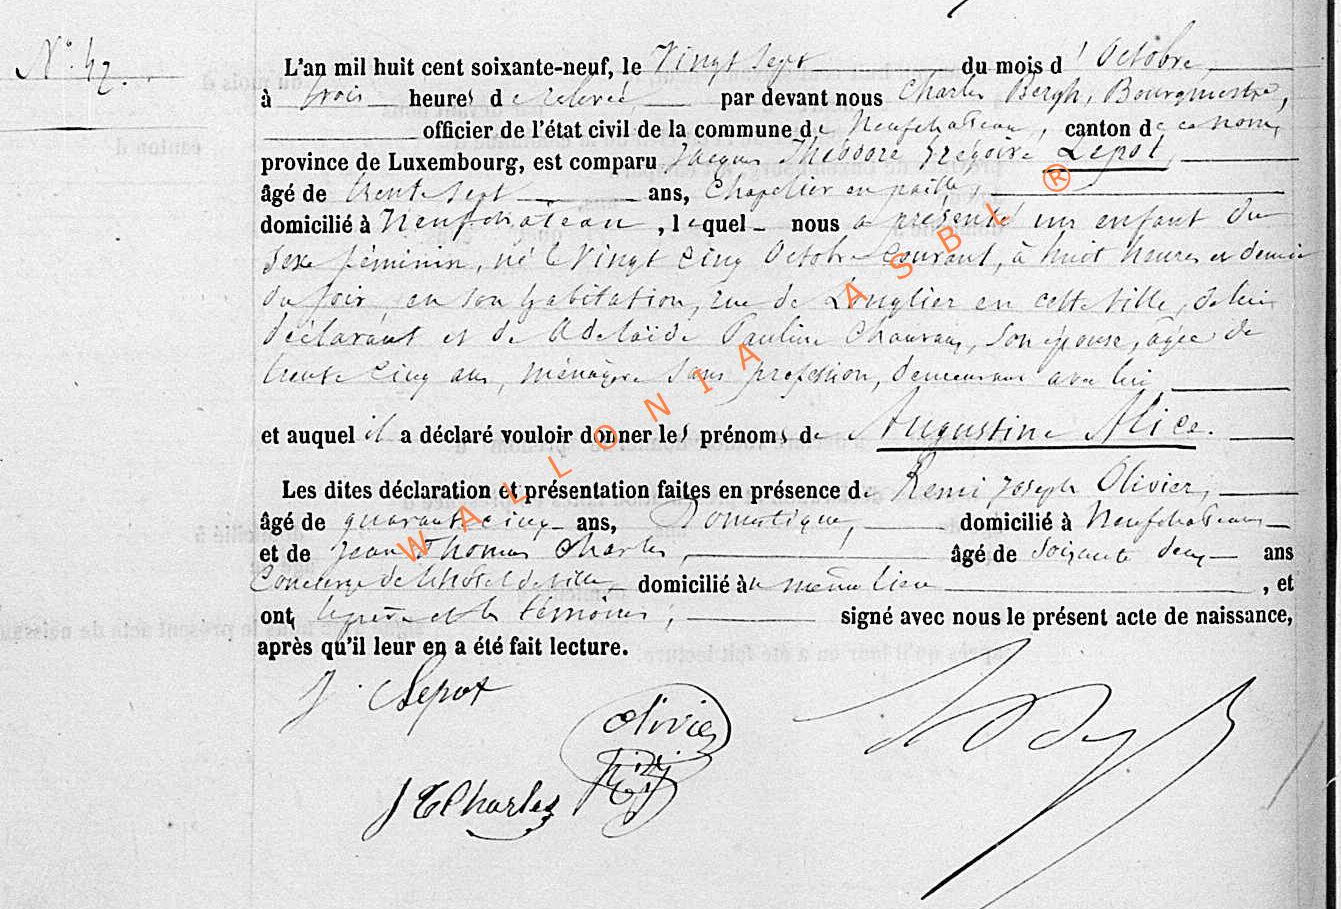 N° 42.
L'an mil huit cent soixante-neuf, le Vingt sept du mois d'Octobre
à trois heures de relevée par devant nous Charles Bergh, Bourgmestre,
officier de l'état civil de la commune de Neufchateau, canton de ce nom,
province de Luxembourg, est comparu Jacques Théodore Grégoire Lepot,
âgé de trente sept ans, Chapelier en paille,
domicilié à Neufchateau, lequel nous a présenté un enfant du
sexe féminin, né le Vingt Cinq Octobre Courant, à huit heures et demie
du soir en son habitation, rue de Longlier en cette ville, de lui
déclarant et de Adelaïde Pauline son épouse, âgée de
trente cinq ans, ménagère sans profession, demeurant avec lui
et auquel il a déclaré vouloir donner les prénoms de Augustine Alice.
Les dites déclaration et présentation faites en présence de Remi Joseph Olivier,
âgé de quarante cinq ans, Domestique, domicilié à Neufchateau
et de Jean Thomas Charles, âgé de soixante deux ans
Concierge de l'hôtel de ville domicilié au même lieu, et
ont le père et les témoins, signé avec nous le présent acte de naissance,
après qu'il leur en a été fait lecture.
J. Lepot
Olivier
J T Charles
WALLONIA ASBL ®